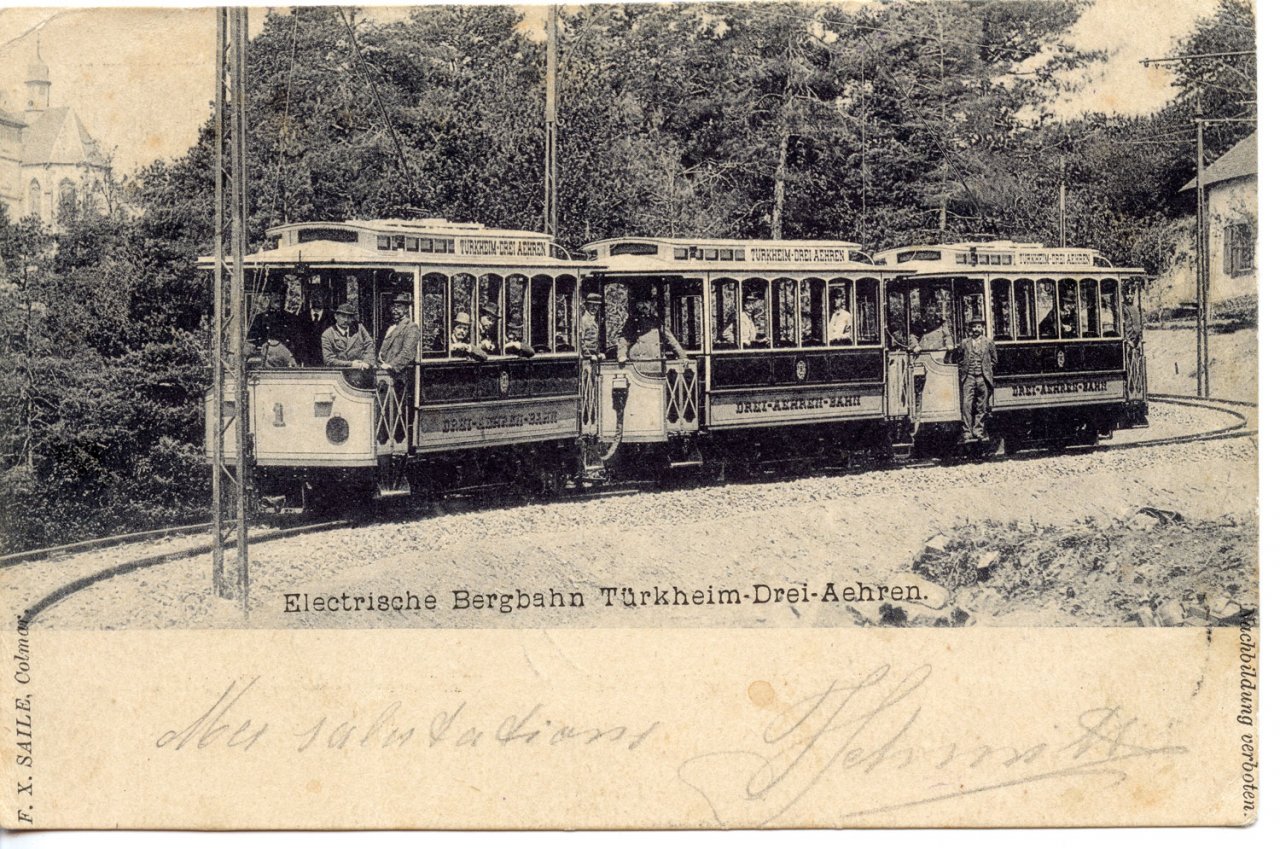 TÜRKHEIM-DREI AEHREN
TÜRKHEIM-DREI AEHREN
TÜRKHEIM-DREI AEHREN
1
DREI-AEHREN-BAHN
DREI-AEHREN-BAHN
DREI-AEHREN-BAHN
Electrische Bergbahn Türkheim-Drei-Aehren.
F. X. SAILE, Colmar.
Nachbildung verboten.
Mes salutations
Schmitt